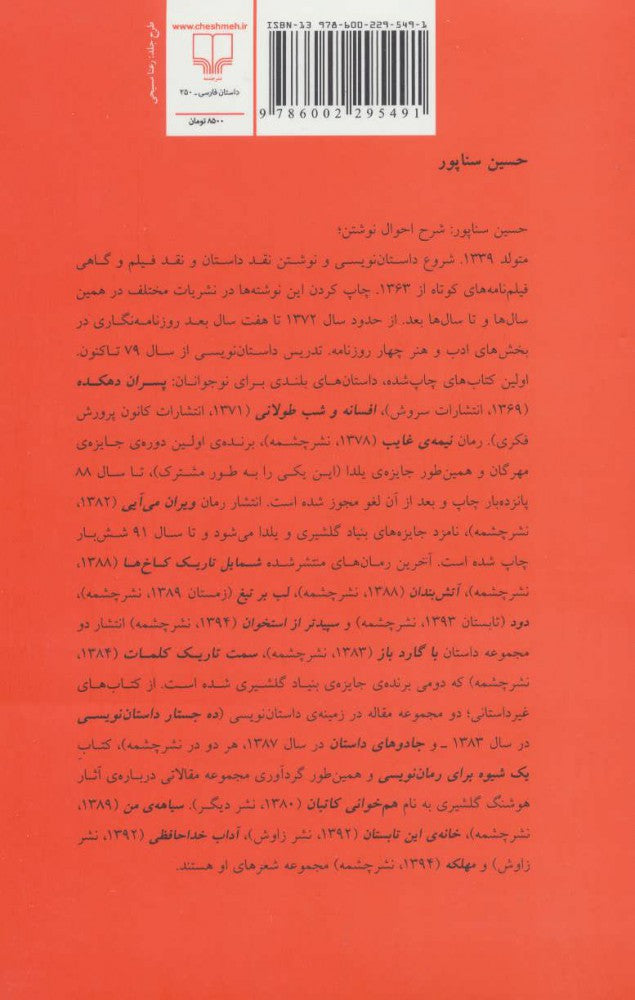 ISBN-13 978-600-229-549-1
www.cheshmeh.ir
نشرچشمه
داستان فارسی ـ ۲۵۰
۸۵۰۰ تومان
9 786002 295491
طرح جلد: رعنا مسیحی
حسین سناپور
حسین سناپور: شرح احوال نوشتن؛
متولد ۱۳۳۹. شروع داستان‌نویسی و نوشتن نقد داستان و نقد فیلم و گاهی
فیلم‌نامه‌های کوتاه از ۱۳۶۳. چاپ کردن این نوشته‌ها در نشریات مختلف در همین
سال‌ها و تا سال‌ها بعد. از حدود سال ۱۳۷۲ تا هفت سال بعد روزنامه‌نگاری در
بخش‌های ادب و هنر چهار روزنامه. تدریس داستان‌نویسی از سال ۷۹ تاکنون.
اولین کتاب‌های چاپ‌شده، داستان‌های بلندی برای نوجوانان: پسران دهکده
(۱۳۶۹، انتشارات سروش)، افسانه و شب طولانی (۱۳۷۱، انتشارات کانون پرورش
فکری). رمان نیمه‌ی غایب (۱۳۷۸، نشرچشمه)، برنده‌ی اولین دوره‌ی جایزه‌ی
مهرگان و همین‌طور جایزه‌ی یلدا (این یکی را به طور مشترک)، تا سال ۸۸
پانزده‌بار چاپ و بعد از آن لغو مجوز شده است. انتشار رمان ویران می‌آیی (۱۳۸۲،
نشرچشمه)، نامزد جایزه‌های بنیاد گلشیری و یلدا می‌شود و تا سال ۹۱ شش‌بار
چاپ شده است. آخرین رمان‌های منتشرشده شمایل تاریک کاخ‌ها (۱۳۸۸،
نشرچشمه)، آتش‌بندان (۱۳۸۸، نشرچشمه)، لب بر تیغ (زمستان ۱۳۸۹، نشرچشمه)،
دود (تابستان ۱۳۹۳، نشرچشمه) و سپیدتر از استخوان (۱۳۹۴، نشرچشمه) انتشار دو
مجموعه داستان با گارد باز (۱۳۸۳، نشرچشمه)، سمت تاریک کلمات (۱۳۸۴،
نشرچشمه) که دومی برنده‌ی جایزه‌ی بنیاد گلشیری شده است. از کتاب‌های
غیرداستانی؛ دو مجموعه مقاله در زمینه‌ی داستان‌نویسی (ده جستار داستان‌نویسی
در سال ۱۳۸۳ ـ و جادوهای داستان در سال ۱۳۸۷، هر دو در نشرچشمه)، کتابِ
یک شیوه برای رمان‌نویسی و همین‌طور گردآوری مجموعه مقالاتی درباره‌ی آثار
هوشنگ گلشیری به نام هم‌خوانی کاتبان (۱۳۸۰، نشر دیگر). سیاهه‌ی من (۱۳۸۹،
نشرچشمه)، خانه‌ی این تابستان (۱۳۹۲، نشر زاوش)، آداب خداحافظی (۱۳۹۲، نشر
زاوش) و مهلکه (۱۳۹۴، نشرچشمه) مجموعه شعرهای او هستند.